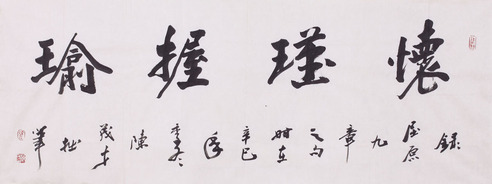 懷瑾握瑜
錄屈原九章之句時在辛巳年季冬陳茂才拙筆